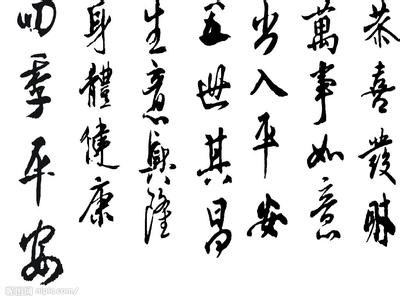 恭喜發財
萬事如意
出入平安
五世其昌
生意興隆
身體健康
四季平安
昵图网 nipic.com